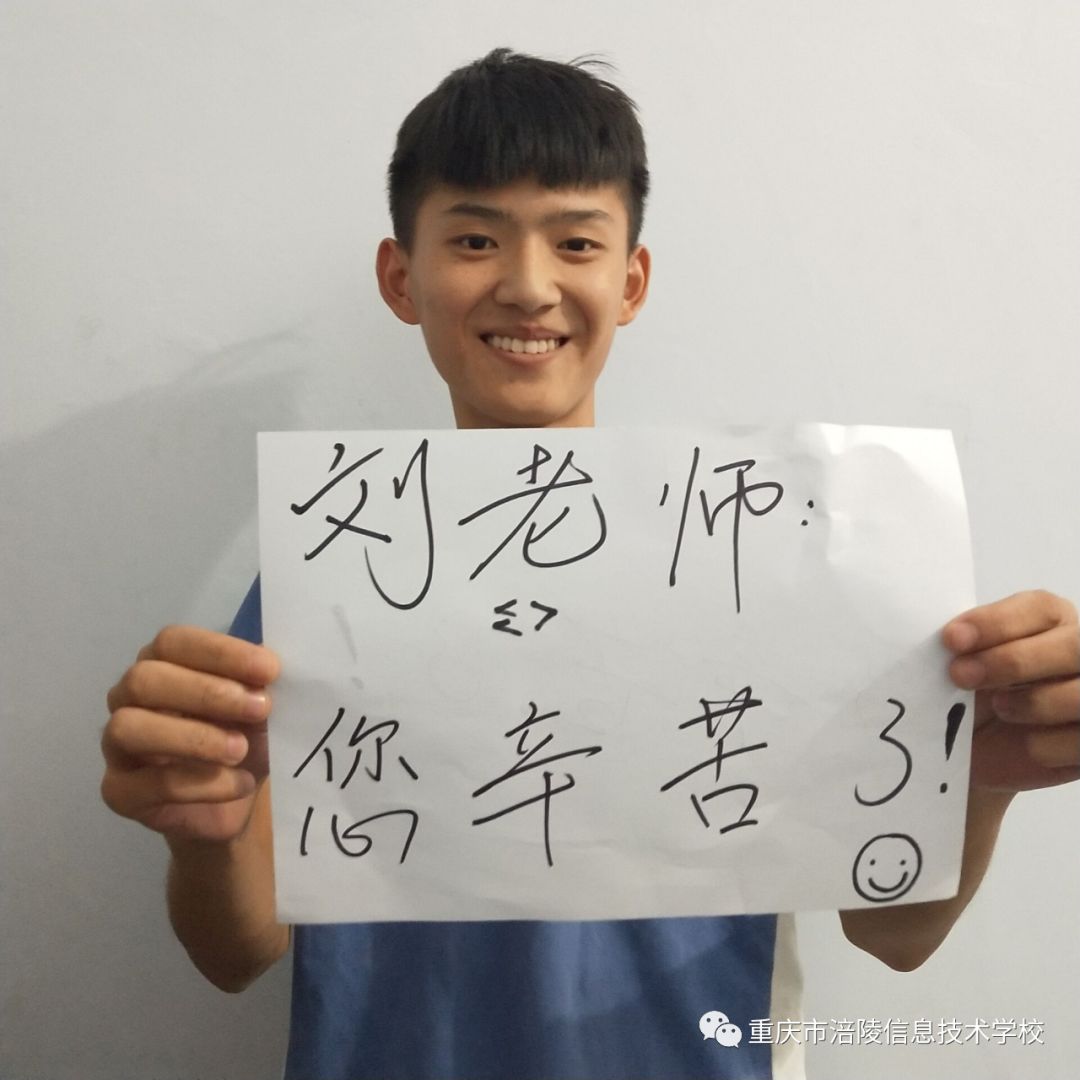 刘老师:
您辛苦了!
重庆市涪陵信息技术学校